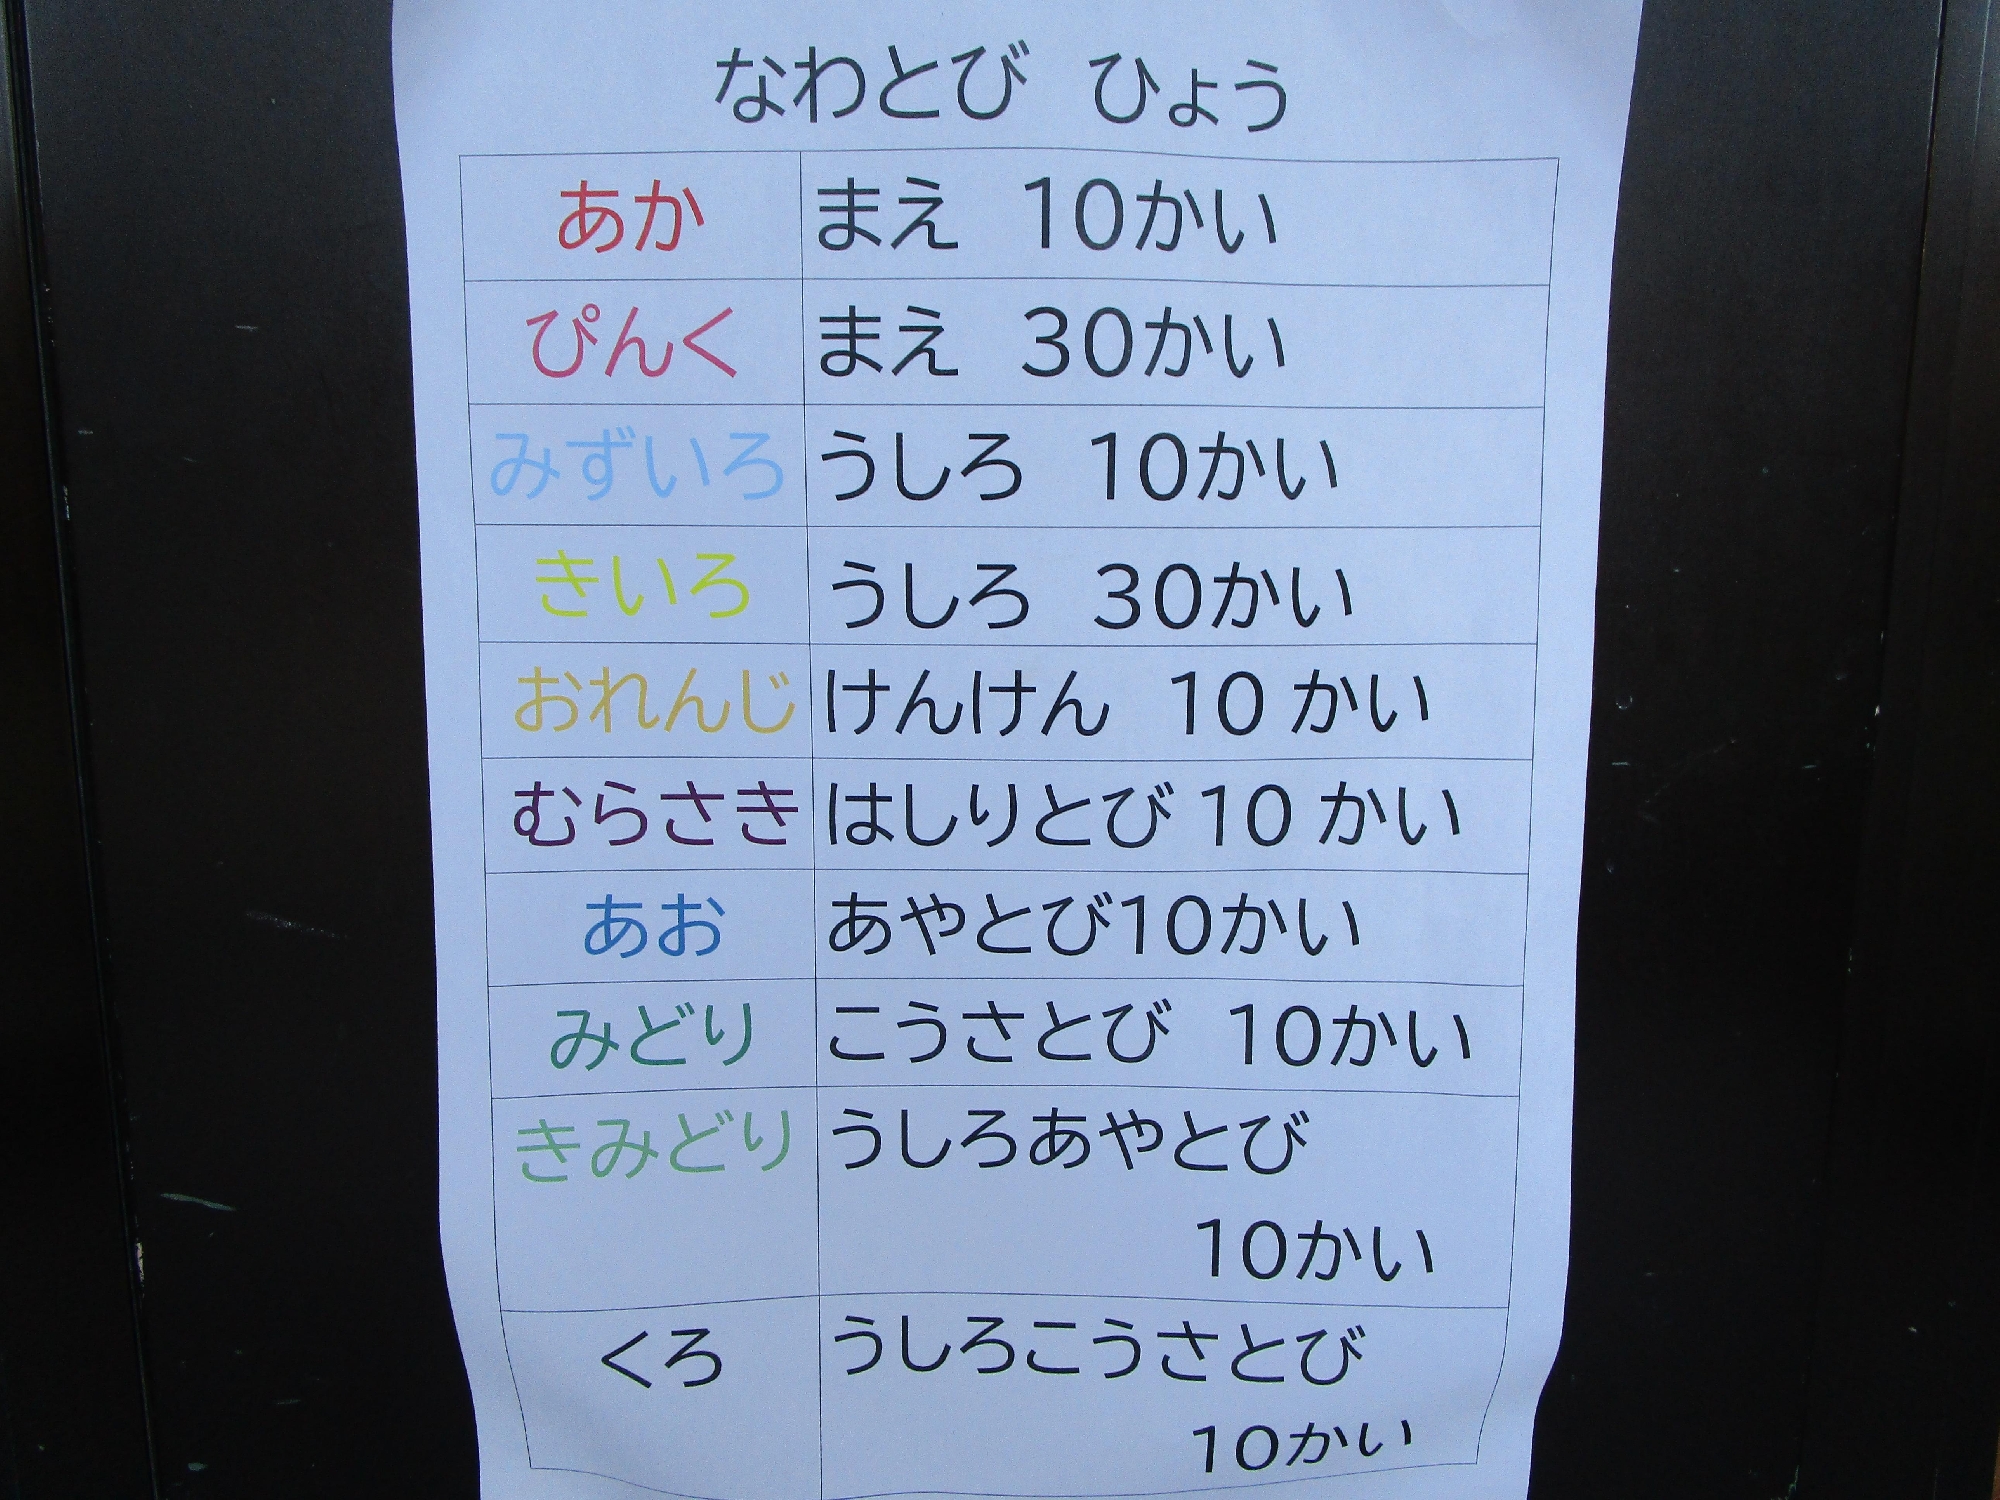 なわとび　ひょう
あか　まえ　10かい
ぴんく　まえ　30かい
みずいろ　うしろ　10かい
きいろ　うしろ　30かい
おれんじ　けんけん　10 かい
むらさき　はしりとび 10 かい
あお　あやとび10かい
みどり　こうさとび　10かい
きみどり　うしろあやとび
10かい
くろ　うしろこうさとび
10かい